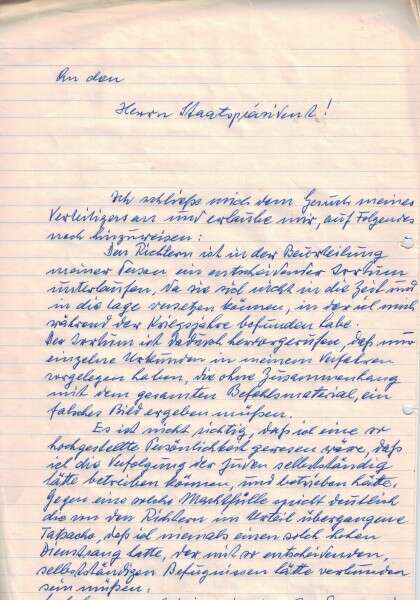 An den
Herrn Staatspräsident!
Ich schließe mich dem Gesuch meines
Verteitigers an und erlaube mir, auf Folgendes
noch hinzuweisen:
Den Richtern ist in der Beurteilung
meiner Person ein entscheidender Irrtum
unterlaufen, da sie sich nicht in die Zeit und
in die Lage versetzen können, in der ich mich
während der Kriegsjahre befunden habe.
Der Irrtum ist dadurch hervorgerufen, daß nur
einzelne Urkunden in meinem Verfahren
vorgelegen haben, die ohne Zusammenhang
mit dem gesamten Befehlsmaterial, ein
falsches Bild ergeben müßen.
Es ist nicht richtig, daß ich eine so
hochgestellte Persönlichkeit gewesen wäre, daß
ich die Verfolgung der Juden selbstständig
hätte betreiben können, und betrieben hätte.
Gegen eine solche Machtfülle spricht deutlich
die von den Richtern im Urteil übergangene
Tatsache, daß ich niemals einen solch hohen
Dienstrang hatte, der mit so entscheidenden,
selbstständigen Befugnissen hätte verbunden
sein müßen.